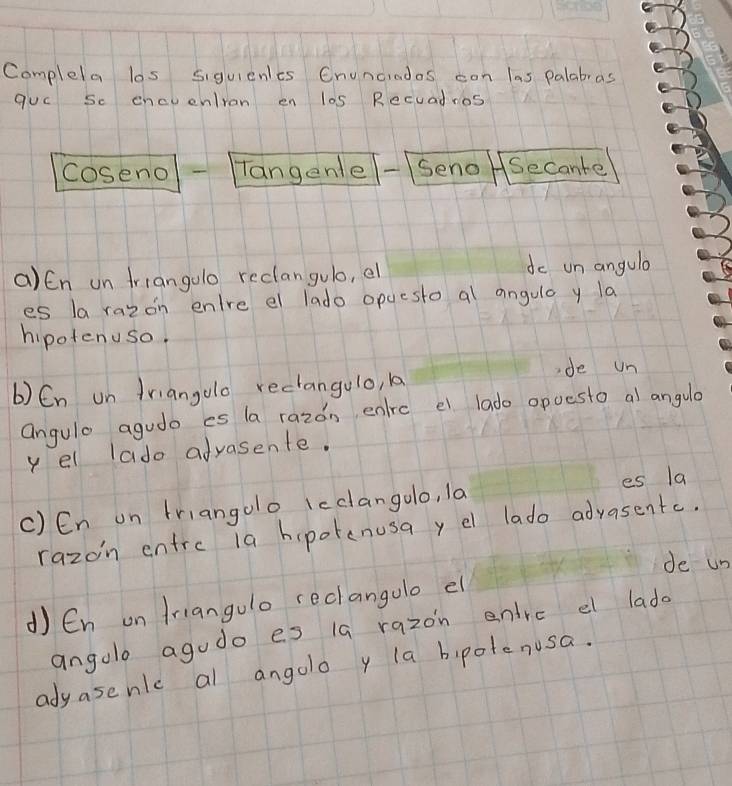 Scribe
Completa los siguientes Enunciados con las palabras
que se encuentran en los Recuadros
Coseno - Tangente - Seno - Secante
a) En un triangulo rectangulo, el de un angulo
es la razón entre el lado opuesto al angulo y la
hipotenuso.
b) En un triangulo rectangulo, la de un
angulo agudo es la razón entre el lado opuesto al angulo
y el lado adyasente.
c) En un triangulo rectangulo, la es la
razón entre la hipotenusa y el lado adyasente.
d) En un triangulo rectangulo el de un
angulo agudo es la razón entre el lado
adyasente al angulo y la hipotenusa.